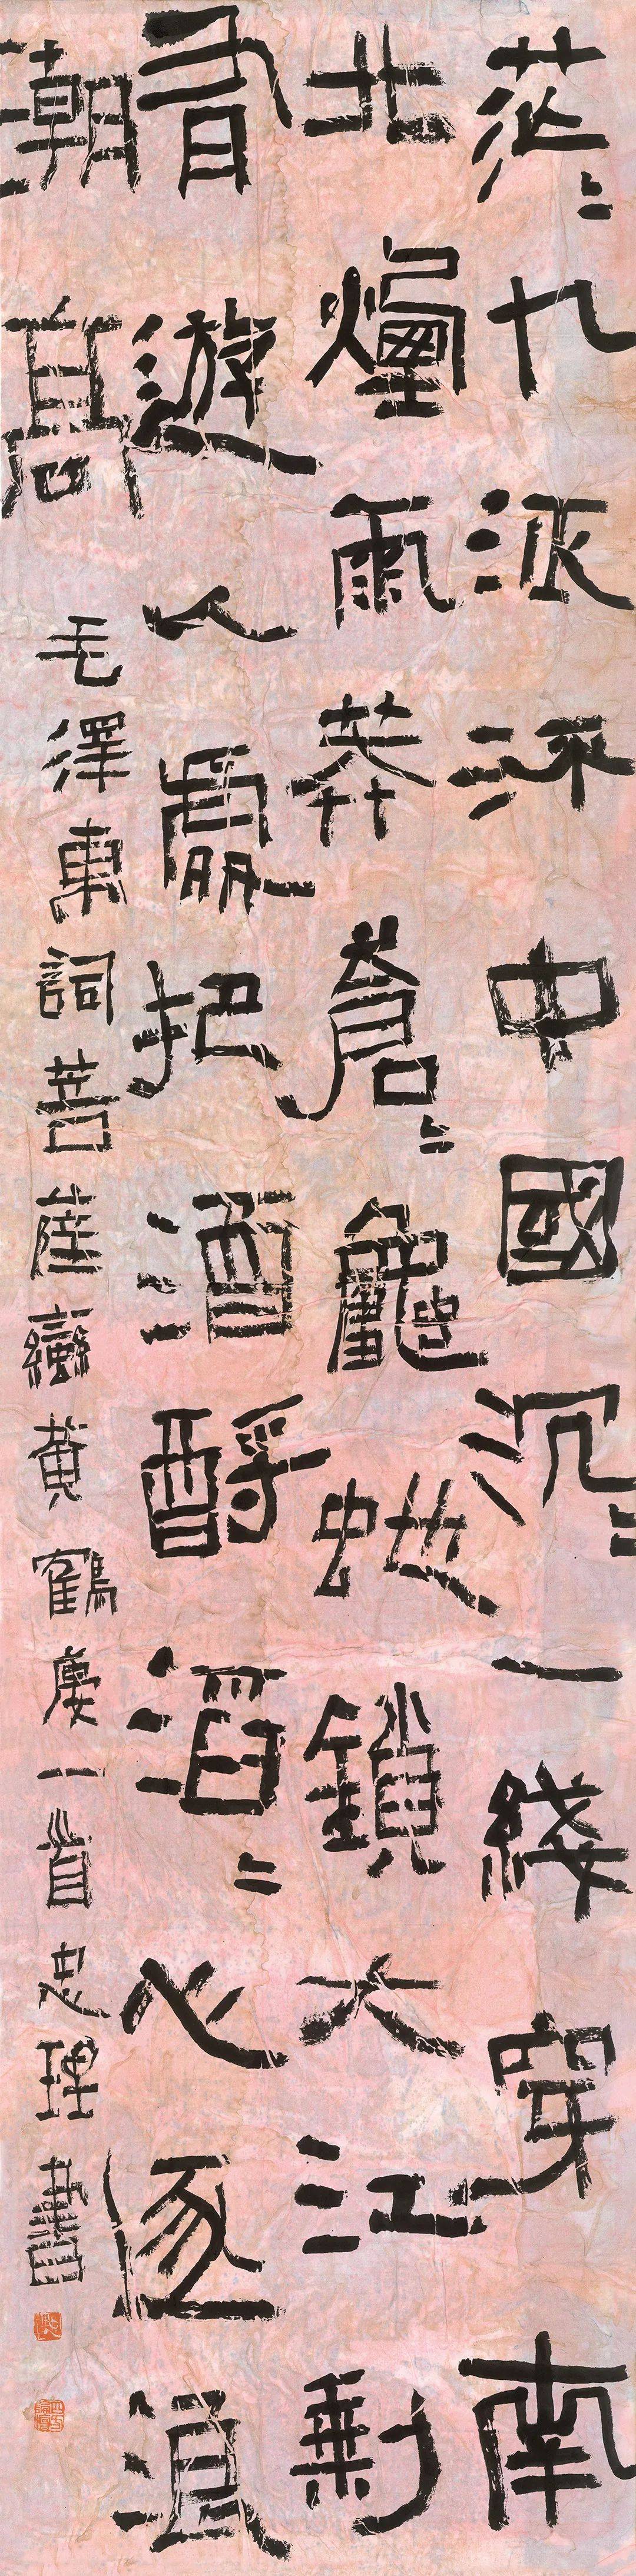 茫〻九派流中國沉〻一綫穿南
北煙雨莽蒼〻龜蛇鎖大江剩
有遊人處把酒酹滔〻心逐浪
潮高
毛澤東詞菩薩蠻黃鶴樓一首忠理書